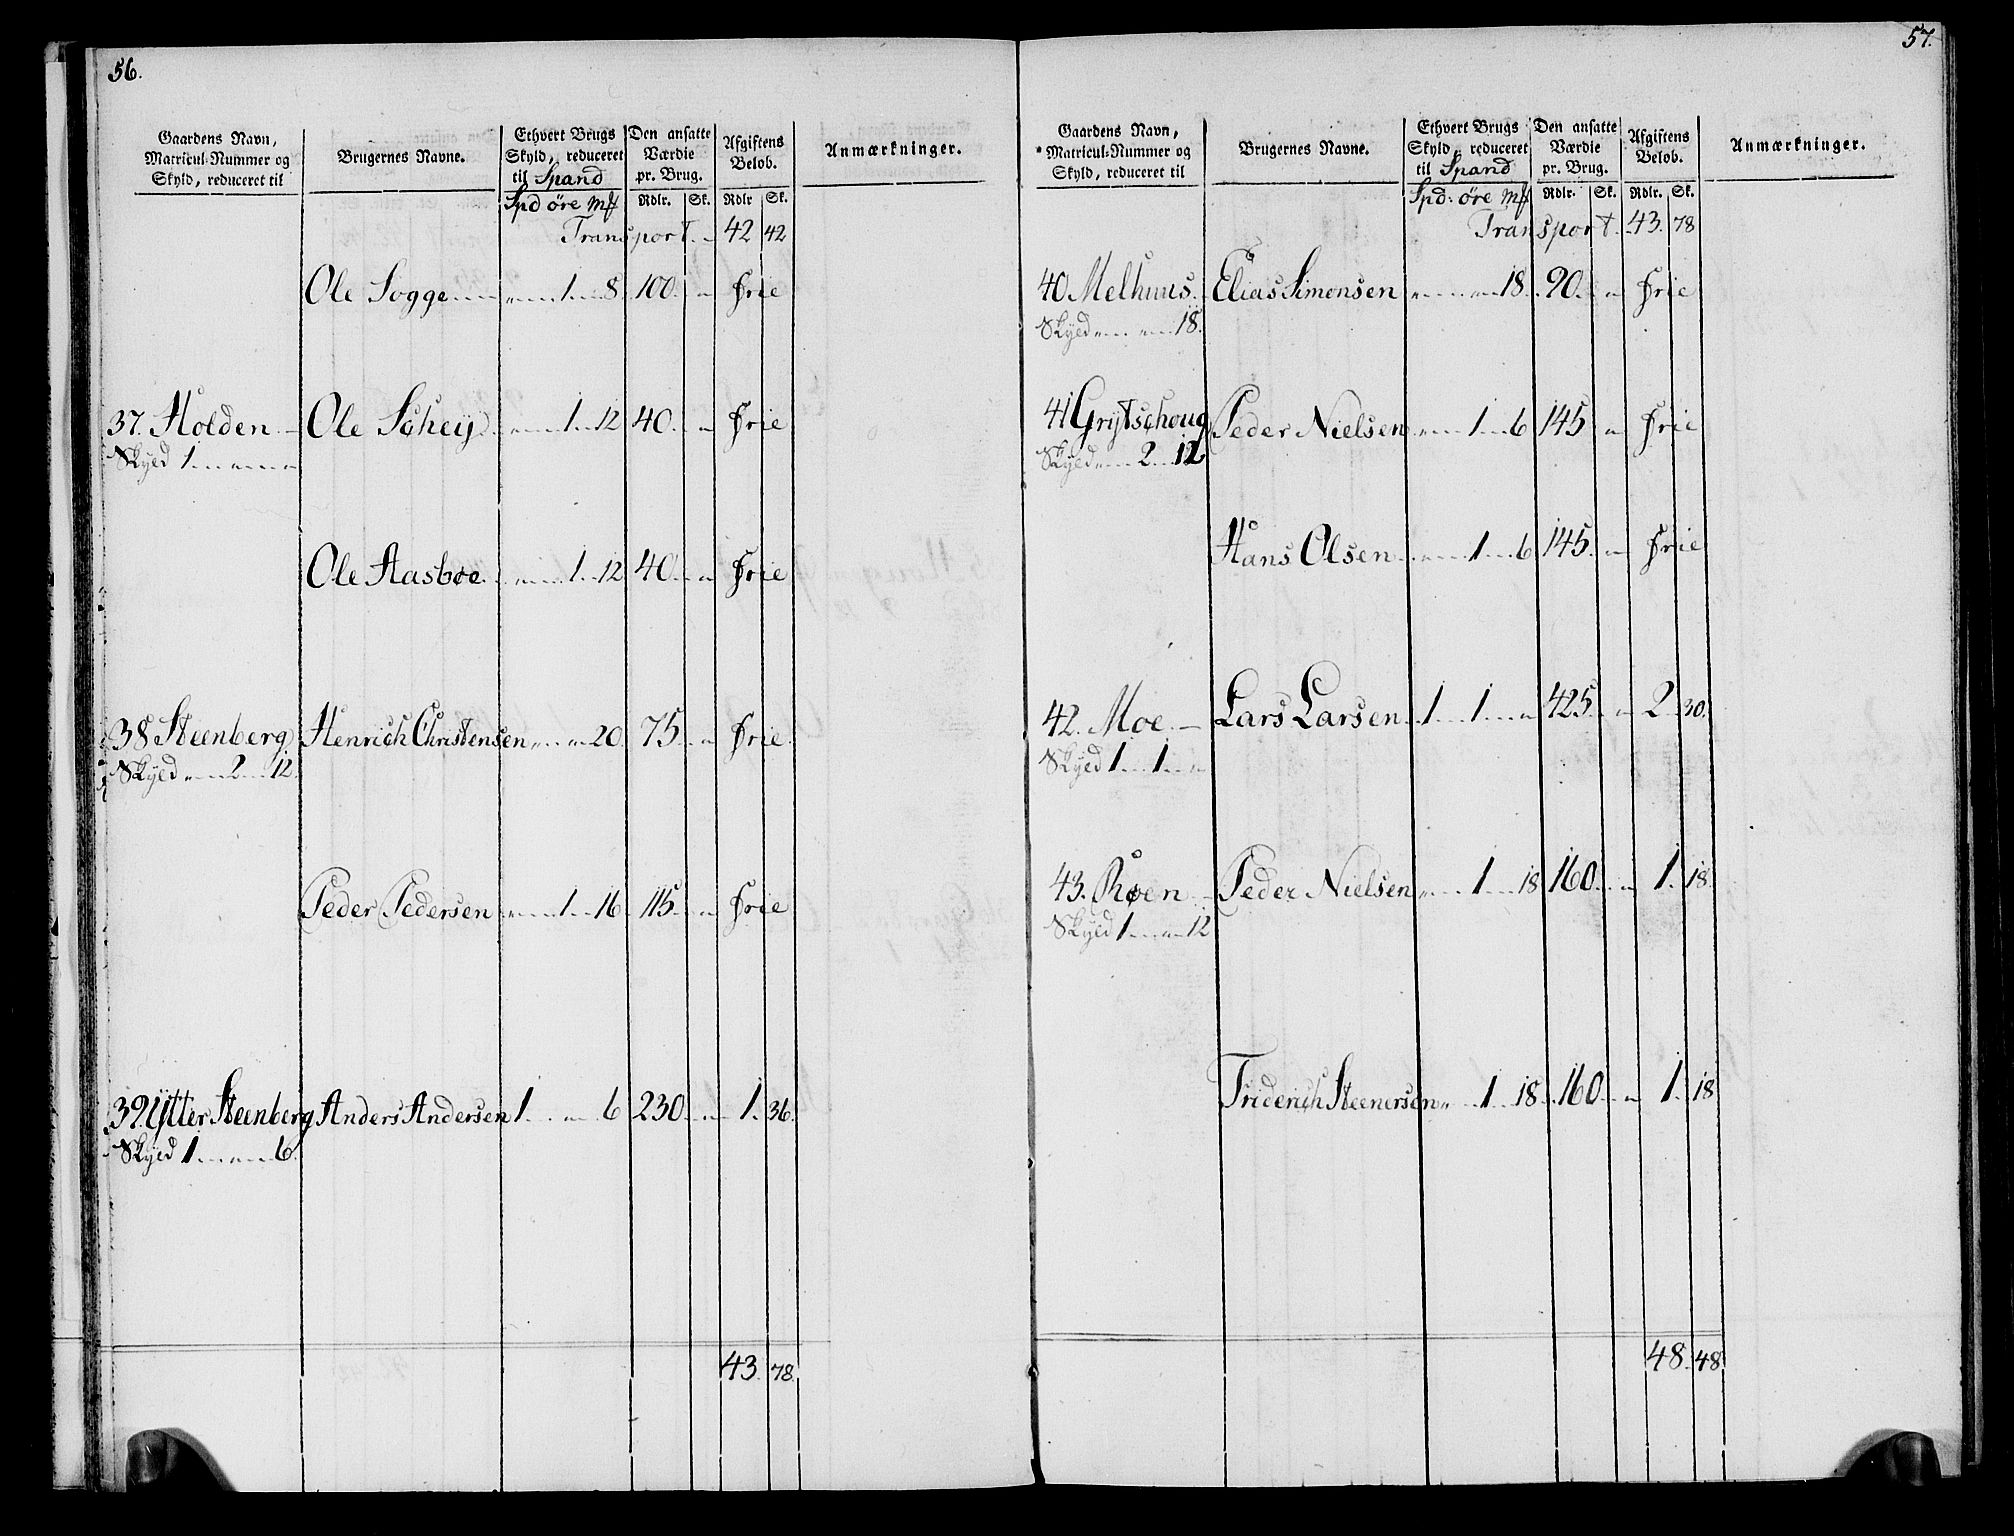 56.
Gaardens Navn, Matricul-Nummer og Skyld, reduceret til | Brugernes Navne. | Ethvert Brugs Skyld, reduceret til Spand | Den ansatte Værdie pr. Brug. | Afgiftens Beløb. | Anmærkninger.
Spd øre mf | Rdlr. | Sk. | Rdlr | Sk.
Transport. 42 42
Ole Sogge 1 8. 100. Frie
37. Holden Ole Schey 1 12 40. Frie
Skyld 1
Ole Aasbøe 1 12 40. Frie
38 Steenberg Henrich Christensen 20. 75. Frie
Skyld 2 12.
Peder Pedersen 1 16 115. Frie
39. Ytter Steenberg Anders Andersen 1 6 230 1. 36.
Skyld 1 6.
43. 78.
57.
Gaardens Navn, Matricul-Nummer og Skyld, reduceret til | Brugernes Navne. | Ethvert Brugs Skyld, reduceret til Spand | Den ansatte Værdie pr. Brug. | Afgiftens Beløb. | Anmærkninger.
Spd: øre mf | Rdlr. | Sk. | Rdlr. | Sk.
Transport. 43. 78
40 Melhuus. Elias Simonsen 18. 90. Frie
Skyld 18.
41 Grytschoug Peder Nielsen 1 6 145 Frie
Skyld 2 12
Hans Olsen 1 6 145. Frie
42. Moe Lars Larsen 1 1 425. 2 30.
Skyld 1 1
43. Røen Peder Nielsen 1 18 160. 1. 18.
Skyld 1 12
Friderich Steenersen 1 18. 160 1. 18
48. 48